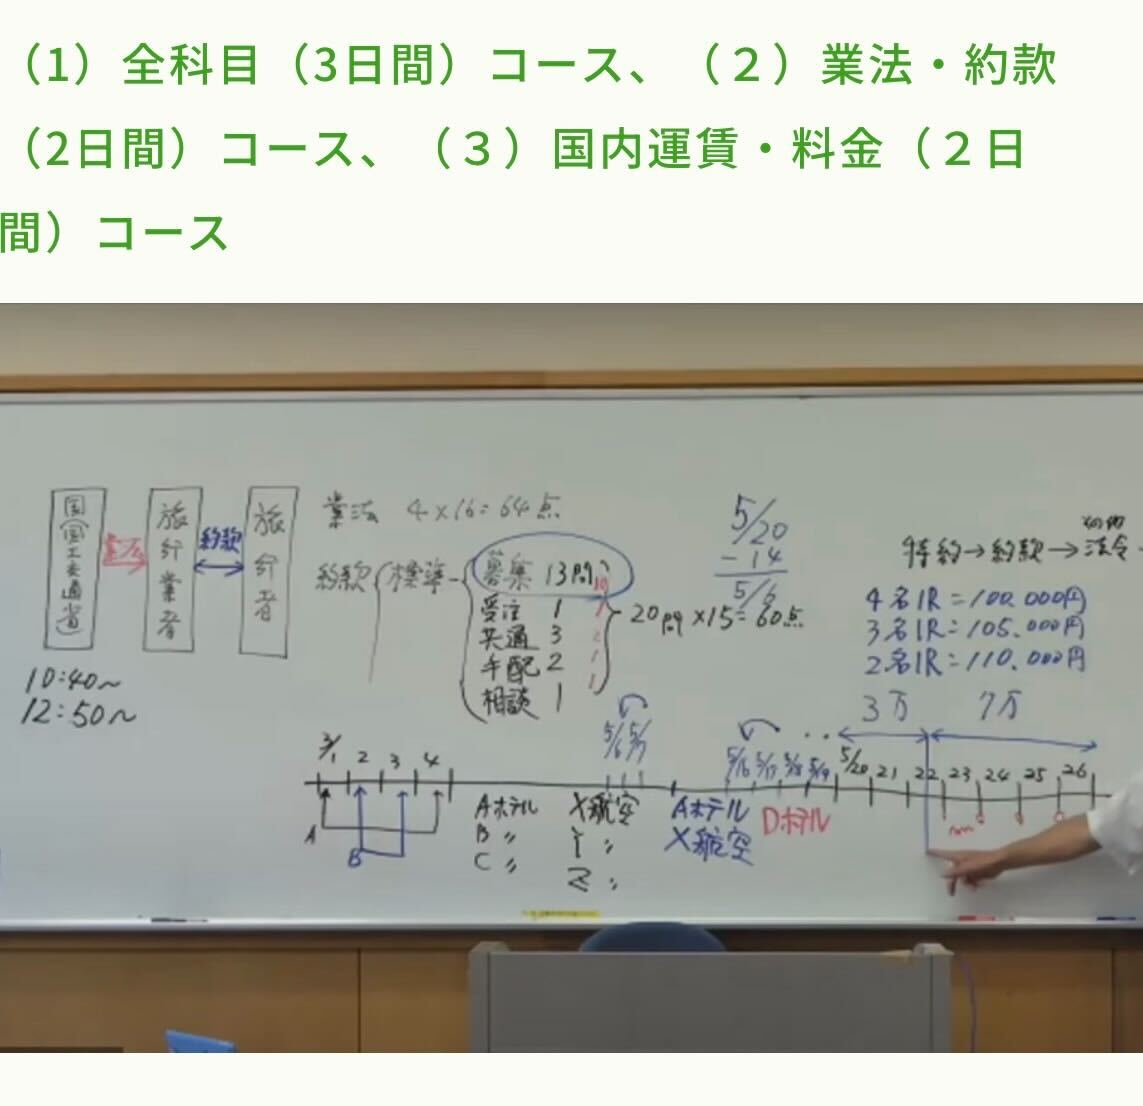 （1）全科目（3日間）コース、（２）業法・約款
（2日間）コース、（３）国内運賃・料金（２日
間）コース
国(国土交通省)
業法
旅行業者
約款
旅行者
10:40〜
12:50〜
業法 4×16=64点
約款 標準
募集 13問 10
受注 1 1
共通 3 2
手配 2 1
相談 1 1
20問×15=60点
5/20
-14
5/6
特約→約款→法令
4名1R=100.000円
3名1R=105.000円
2名1R=110.000円
3万 7万
3/1 2 3 4
5/6 5/7
5/16 5/17 5/18 5/19 5/20 21 22 23 24 25 26
A
B
Aホテル X航空
B 〃 Y 〃
C 〃 Z 〃
Aホテル
X航空
Dホテル